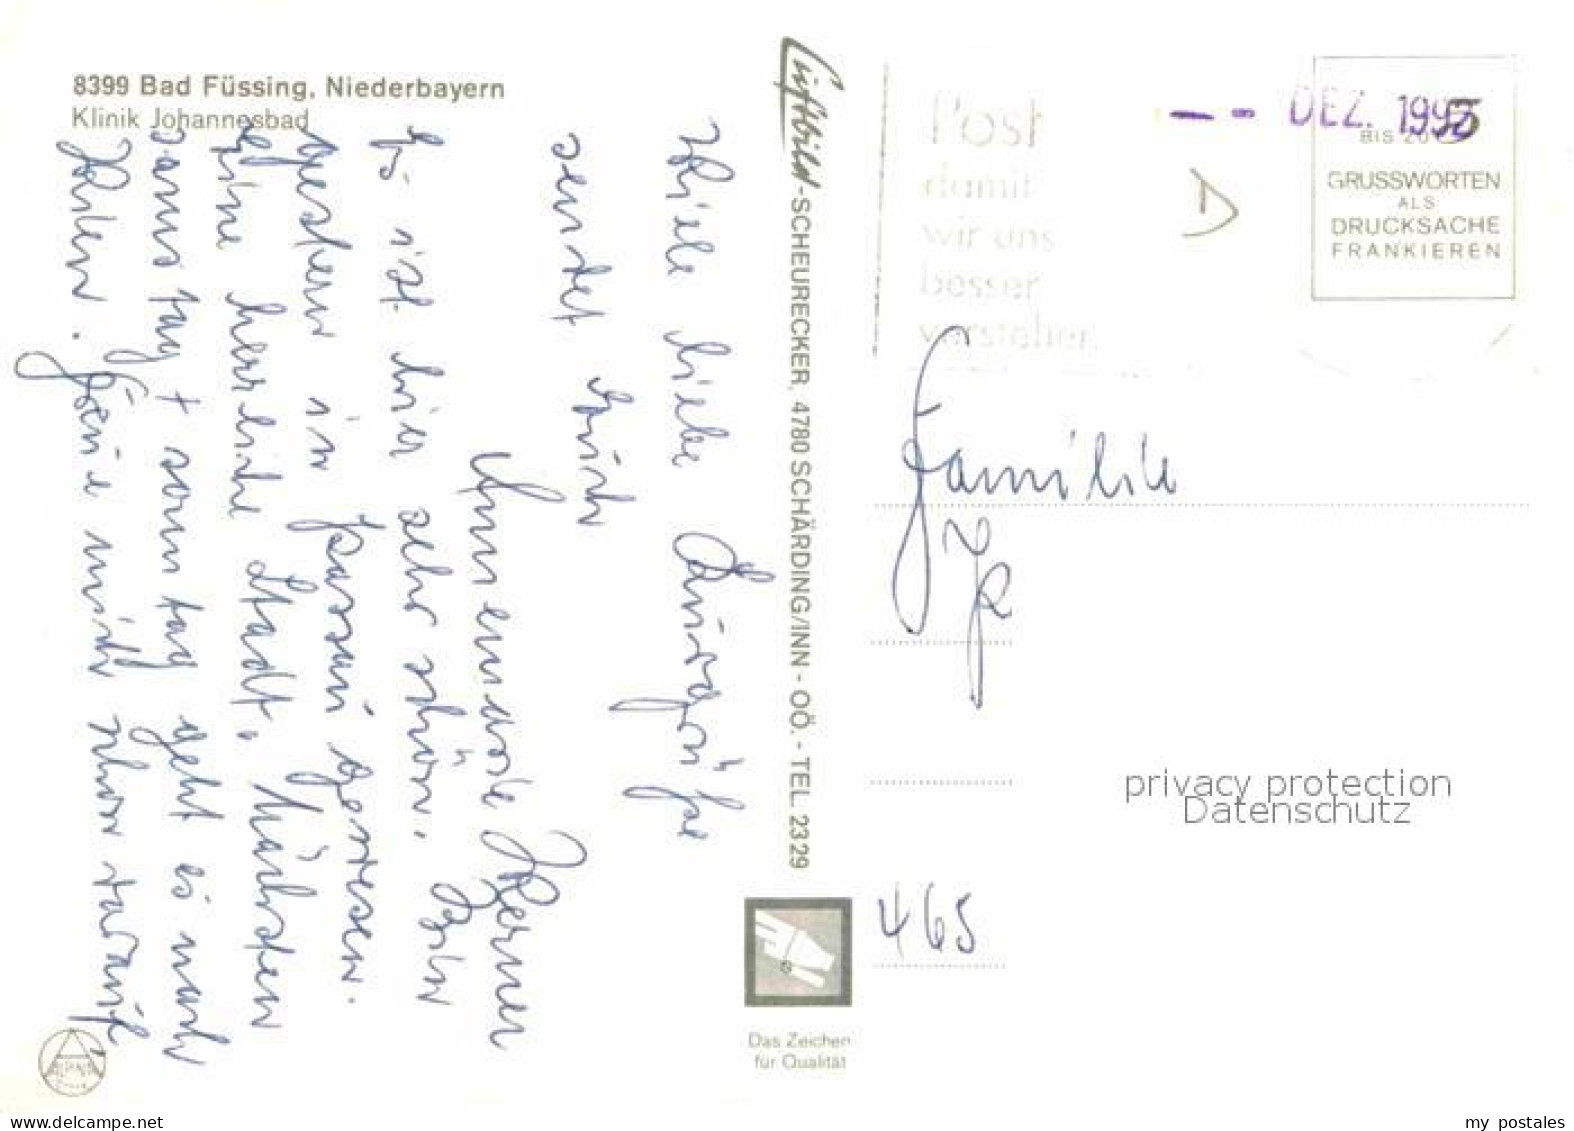 8399 Bad Füssing, Niederbayern
Klinik Johannesbad
Viele liebe Kurgrüße
sendet Euch
Annemarie Kerner
Es ist hier sehr schön. Bin
gestern in Passau gewesen.
Eine herrliche Stadt. Nächsten
Samstag + Sonntag geht es nach
Wien. Freue mich schon darauf.
Luftbild-SCHEURECKER, 4780 SCHÄRDING/INN - OÖ. - TEL. 2329
Das Zeichen
für Qualität
ALPINA
Post
damit
wir uns
besser
verstehen
-- DEZ. 1993
D
BIS 20
GRUSSWORTEN
ALS
DRUCKSACHE
FRANKIEREN
Familie
465
privacy protection
Datenschutz
my postales